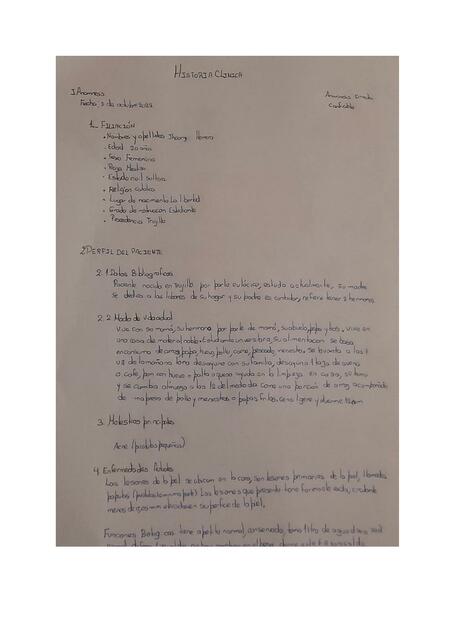 HISTORIA CLINICA
I. Anamnesis
Anamnesis Directa
Fecha, 5 de octubre 2022
Confiable
1. FILIACIÓN
• Nombres y apellidos Jhoany Herrera
• Edad 20 años
• Sexo Femenino
• Raza Mestiza
• Estado civil soltera
• Religion catolica
• Lugar de nacimiento La libertad
• Grado de instruccion Estudiante
• Procedencia Trujillo
2. PERFIL DEL PACIENTE
2.1 Datos Bibliograficos
Paciente nacida en Trujillo por parto eutócico, estudia actualmente, su madre
se dedica a las labores de su hogar y su padre es contador, refiere tener 2 hermanos
2.2 Modo de vida actual
Vive con su mamá, su hermana por parte de mamá, su abuelo, papá y tios. Vive en
una casa de material noble. Estudiante universitaria, su alimentacion se basa
en consumo de arroz, papa, huevo, pollo, carne, pescado, menestra. Se levanta a las 7
de la mañana toma desayuno con su familia, desayuna 1 taza de avena
o café, pan con huevo o palta o queso ayuda en la limpieza en casa, se baña
y se cambia almuerza a las 12 del mediodia come una porción de arroz acompañado
de una presa de pollo y menestras o papas fritas. Cena ligero y duerme 12am
3. Molestias principales
Acne (protuberas pequeñas)
4. Enfermedades Actuales
Las lesiones de la piel se ubican en la cara, son lesiones primarias de la piel, llamadas
papulas Las lesiones que presenta tiene forma
menos de superficie de la piel.
Funciones Biologicas tiene apetito normal, conservado, toma 1 litro de agua